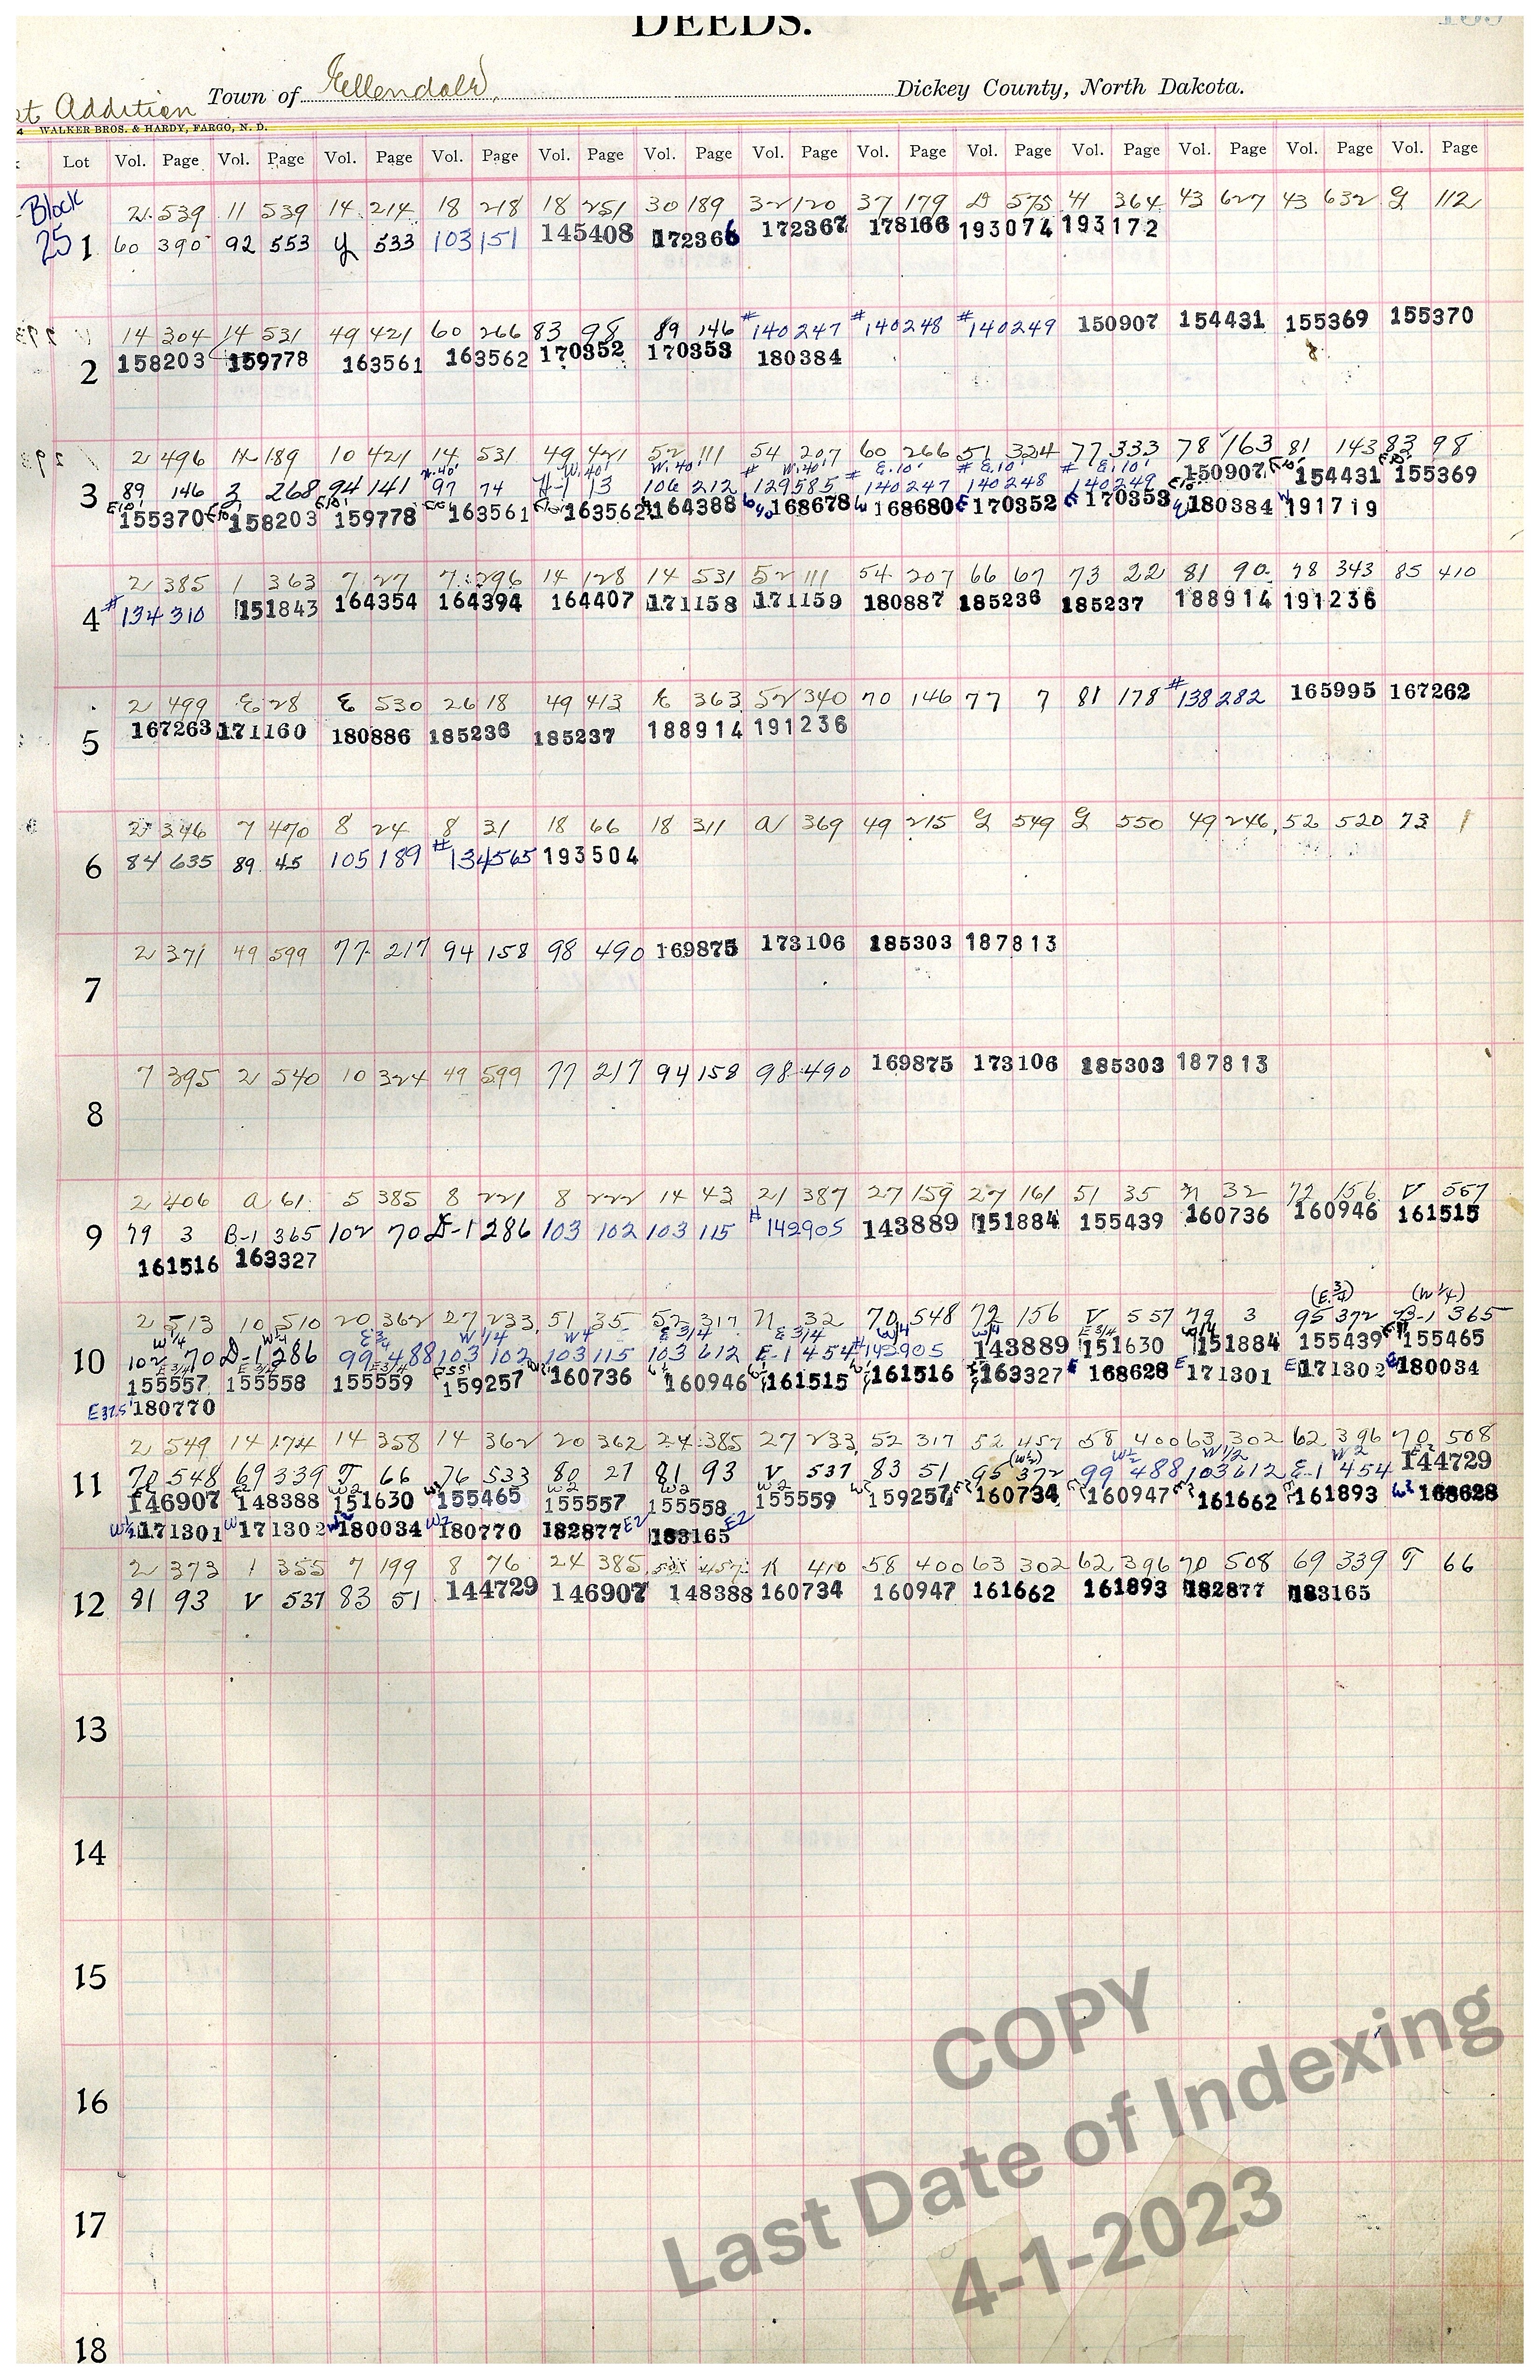 DEEDS.
Addition Town of Ellendale, Dickey County, North Dakota.
WALKER BROS. & HARDY, FARGO, N. D.
Lot Vol. Page Vol. Page Vol. Page Vol. Page Vol. Page Vol. Page Vol. Page Vol. Page Vol. Page Vol. Page Vol. Page Vol. Page Vol. Page
Block 2 539 11 539 14 214 18 218 18 251 30 189 32 120 37 179 D 575 41 364 43 627 43 632 G 112
25 1 60 390 92 553 Y 533 103 151 145408 172366 172367 178166 193074 193172
14 304 14 531 49 421 60 266 83 98 89 146 #140247 #140248 #140249 150907 154431 155369 155370
2 158203 159778 163561 163562 170352 170353 180384
2 496 14 189 10 421 14 531 49 421 52 111 54 207 60 266 51 324 77 333 78 163 81 143 83 98
W.40' W.40' W.40' W.40' E.10' E.10' E.10'
3 89 146 3 268 94 141 97 74 H-1 13 106 212 #129585 #140247 #140248 #140249 150907 154431 155369
155370 158203 159778 163561 163562 164388 168678 168680 170352 170353 180384 191719
2 385 1 363 7 27 7 296 14 128 14 531 52 111 54 207 66 67 73 22 81 90 78 343 85 410
4 #134310 151843 164354 164394 164407 171158 171159 180887 185236 185237 188914 191236
2 499 E 28 E 530 26 18 49 413 K 363 52 340 70 146 77 7 81 178 #138282 165995 167262
5 167263 171160 180886 185236 185237 188914 191236
2 346 7 470 8 24 8 31 18 66 18 311 a 369 49 215 G 549 G 550 49 246 52 520 73 1
6 84 635 89 45 105 189 #134565 193504
2 371 49 599 77 217 94 158 98 490 169875 173106 185303 187813
7
7 395 2 540 10 324 49 599 77 217 94 158 98 490 169875 173106 185303 187813
8
2 406 a 61 5 385 8 221 8 222 14 43 21 387 27 159 27 161 51 35 N 32 72 156 V 557
9 79 3 B-1 365 102 70 D-1 286 103 102 103 115 #142905 143889 151884 155439 160736 160946 161515
161516 163327
(E 3/4) (W 1/4)
2 513 10 510 20 362 27 233 51 35 52 317 N 32 70 548 72 156 V 557 79 3 95 372 B-1 365
W 1/4 W 1/4 E 3/4 W 1/4 W 4 E 3/4 E 3/4 W/4 W/4 E 3/4 W/4
10 102 70 D-1 286 99 488 103 102 103 115 103 612 E-1 454 #142905 143889 151630 151884 155439 155465
155557 155558 155559 159257 160736 160946 161515 161516 163327 168628 171301 171302 180034
E37.5' 180770
2 549 14 174 14 358 14 362 20 362 24 385 27 233 52 317 52 457 58 400 63 302 62 396 70 508
11 70 548 69 339 T 66 76 533 80 27 81 93 V 537 83 51 95 372 99 488 103 612 E-1 454 144729
146907 148388 151630 155465 155557 155558 155559 159257 160734 160947 161662 161893 168628
171301 171302 180034 180770 182877 E2 183165 E2
2 373 1 355 7 199 8 76 24 385 52 457 K 410 58 400 63 302 62 396 70 508 69 339 T 66
12 81 93 V 537 83 51 144729 146907 148388 160734 160947 161662 161893 182877 183165
13
14
15
16
17
18
COPY
Last Date of Indexing
4-1-2023